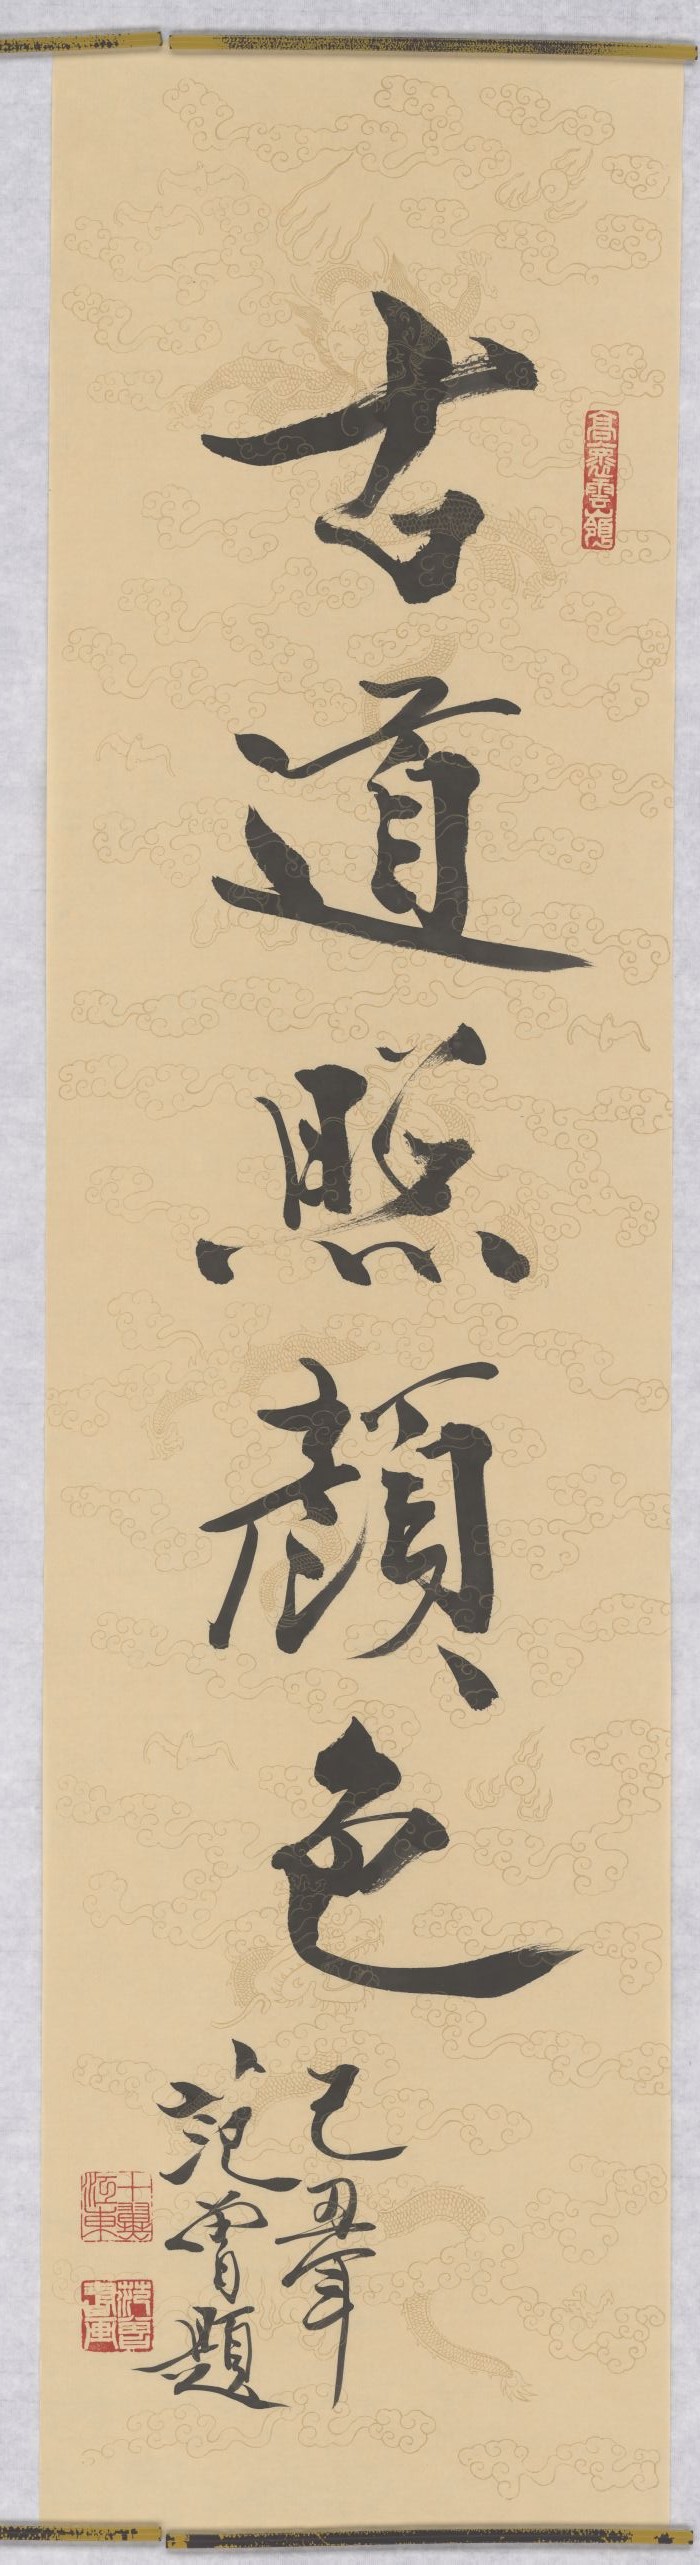 古道照顔色
己丑年
范曾題